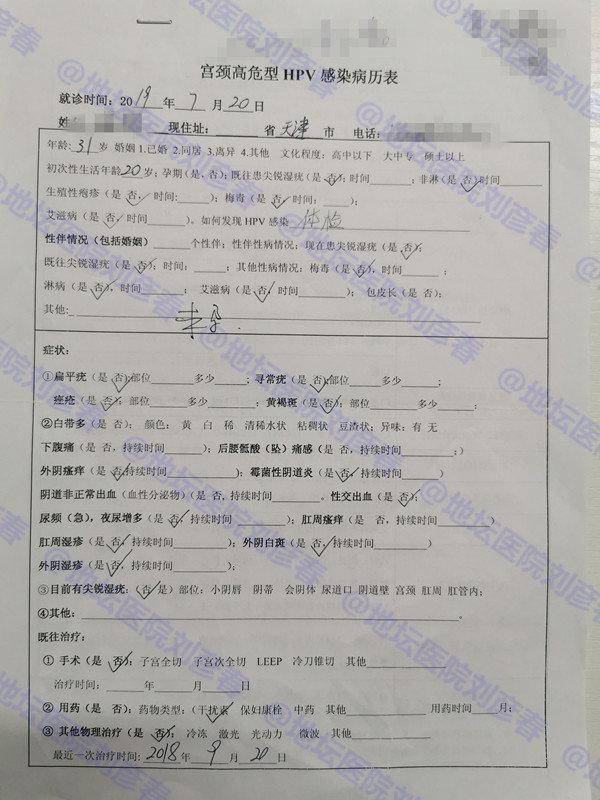 宫颈高危型 HPV 感染病历表
就诊时间：2019 年 7 月 20 日
现住址： 省 天津 市 电话：
年龄：31 岁 婚姻 1.已婚 2.同居 3.离异 4.其他 文化程度：高中以下 大中专 硕士以上
初次性生活年龄 20 岁；孕期（是，否）；既往患尖锐湿疣（是 否）；时间 ；非淋（是 否）时间
生殖性疱疹（是 否，时间： ）；梅毒（是 否，时间： ）；
艾滋病（是 否，时间 ）。如何发现 HPV 感染 体检
性伴情况（包括婚姻） 个性伴；性伴性病情况：现在患尖锐湿疣（是 否）；
既往尖锐湿疣（是 否）；时间： ；其他性病情况：梅毒（是 否），时间 ；
淋病（是 否），时间 ； 艾滋病（是 否，时间 ）； 包皮长（是 否）；
其他： 未孕.
症状：
①扁平疣（是 否）部位 多少 ；寻常疣（是 否）部位 多少 ；
痤疮（是 否）；部位 多少 ；黄褐斑（是 否）；部位 多少 ；
②白带多（是 否）； 颜色： 黄 白 稀 清稀水状 粘稠状 豆渣状；异味：有 无
下腹痛（是 否，持续时间 ）；后腰骶酸（坠）痛感（是 否，持续时间 ；）
外阴瘙痒（是 否,持续时间 ）；霉菌性阴道炎（是 否，持续时间 ）
阴道非正常出血（血性分泌物）（是 否, 持续时间 。性交出血（是 否）；
尿频（急），夜尿增多（是 否，持续时间 ）；肛周瘙痒（是 否，持续时间 ）
肛周湿疹（是 否，持续时间 ）；外阴白斑（是 否，持续时间 ）
外阴湿疹（是 否，持续时间 ）；
③目前有尖锐湿疣：（否 是）部位：小阴唇 阴蒂 会阴体 尿道口 阴道壁 宫颈 肛周 肛管内；
④其他： 。
既往治疗：
① 手术（是 否）：子宫全切 子宫次全切 LEEP 冷刀锥切 其他
治疗时间： 年 月 日
② 用药（是 否）：药物类型：（干扰素 保妇康栓 中药 其他 用药时间 月；
③ 其他物理治疗（是 否）：冷冻 激光 光动力 微波 其他
最近一次治疗时间：2018 年 9 月 20 日
@地坛医院刘彦春